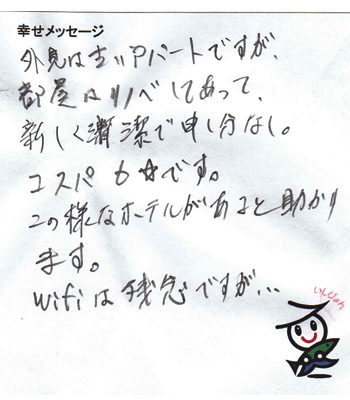 幸せメッセージ
外見は古いアパートですが、
部屋はリノベしてあって、
新しく清潔で申し分なし。
コスパも☆です。
この様なホテルがあると助かり
ます。
wifiは残念ですが...